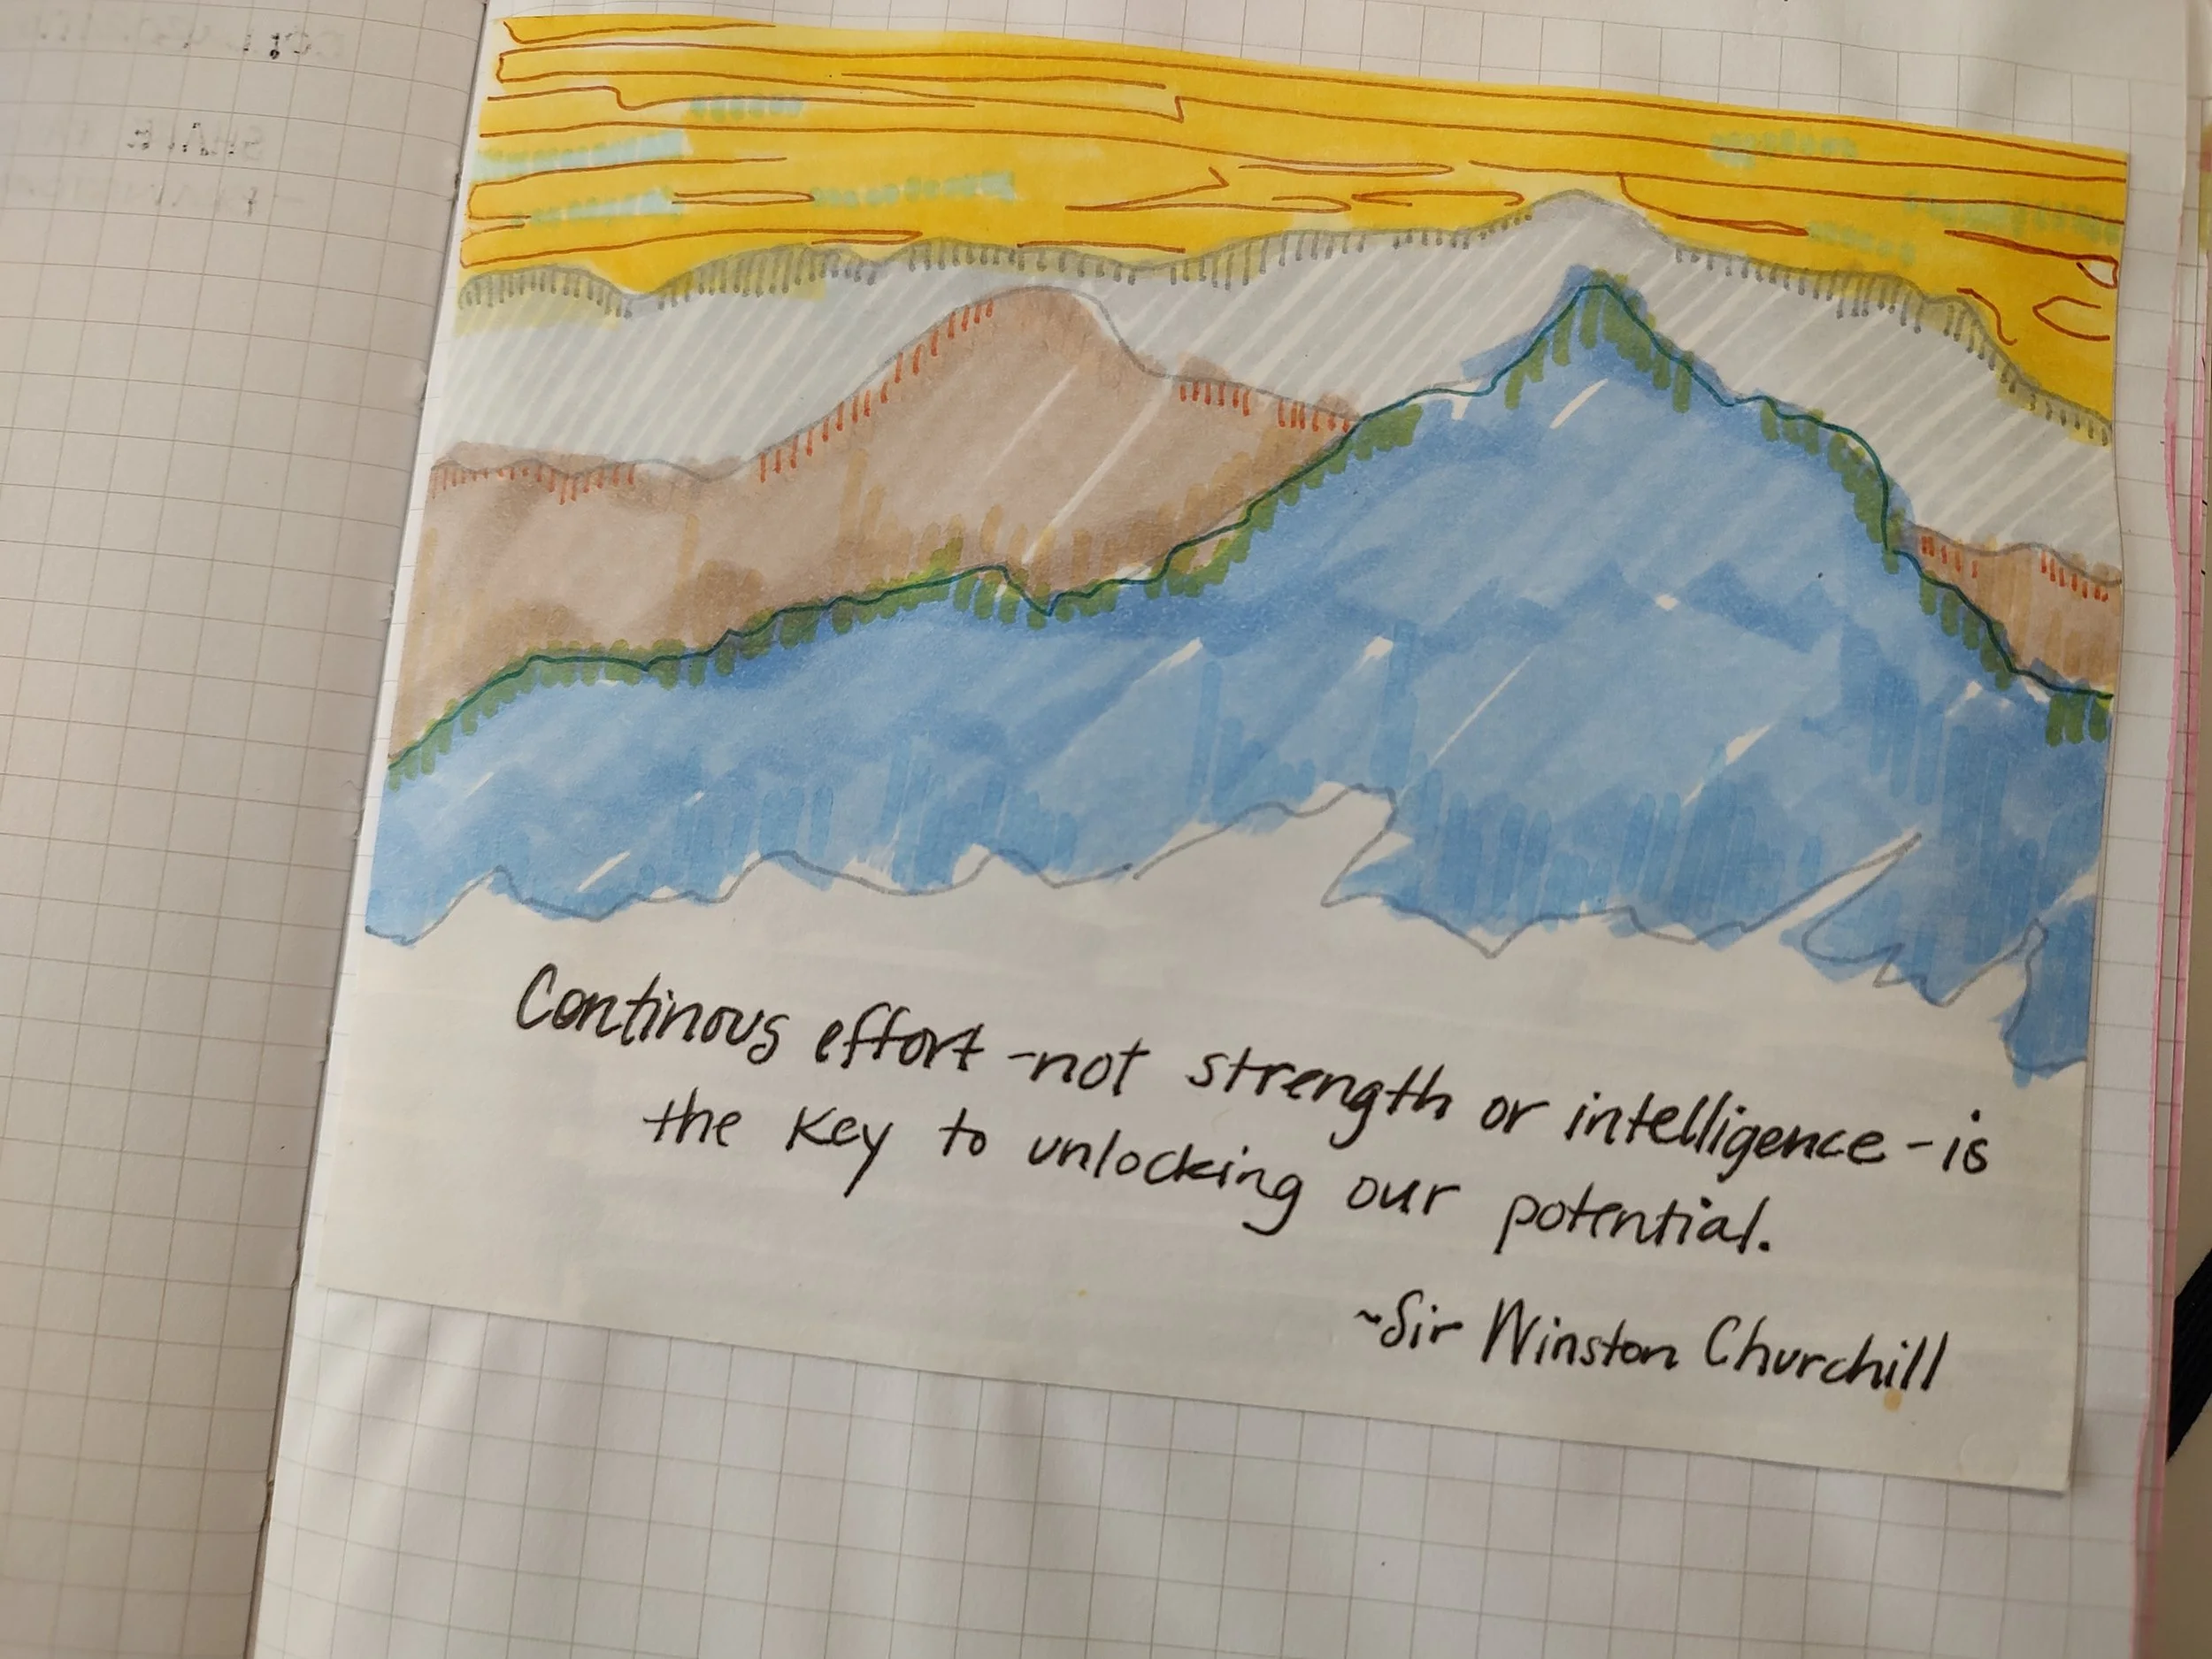 Continous effort - not strength or intelligence - is
the key to unlocking our potential.
~ Sir Winston Churchill